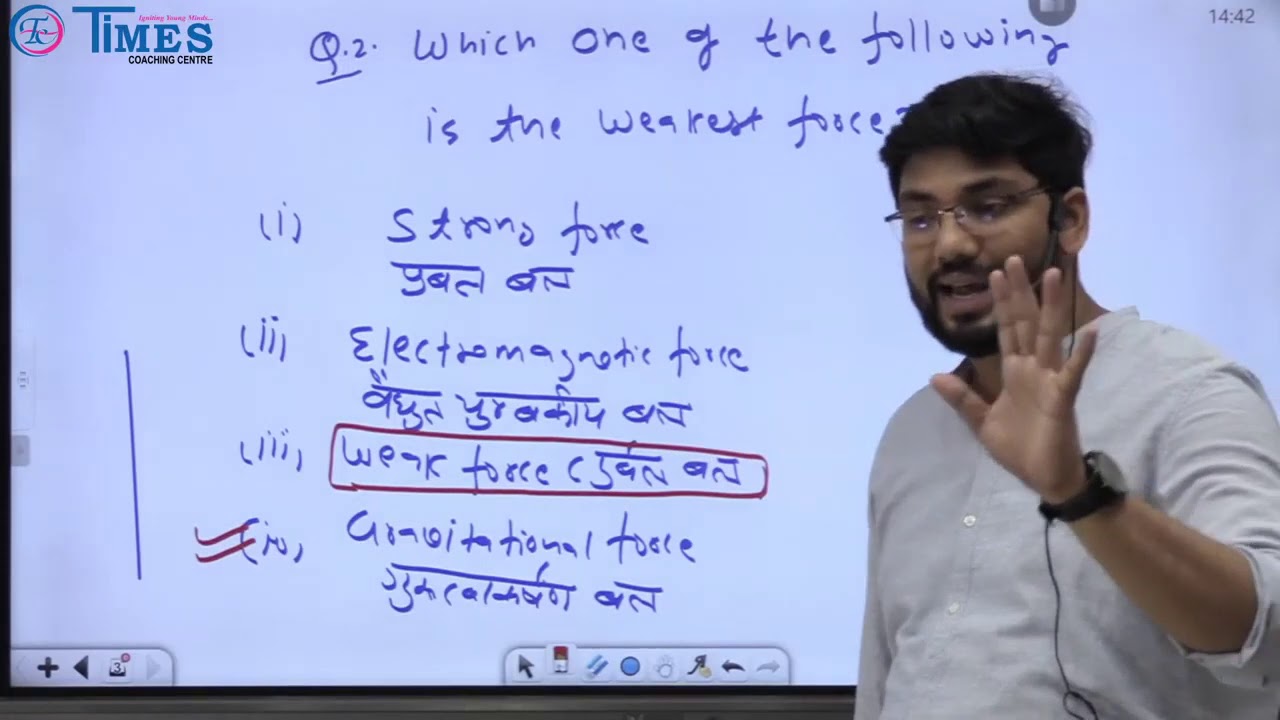 Igniting Young Minds...
TIMES
COACHING CENTRE
14:42
Q.2. Which one of the following
is the weakest force?
(i) Strong force
प्रबल बल
(ii) Electromagnetic force
वैद्युत चुम्बकीय बल
(iii) Weak force (दुर्बल बल
(iv) Gravitational force
गुरुत्वाकर्षण बल
3